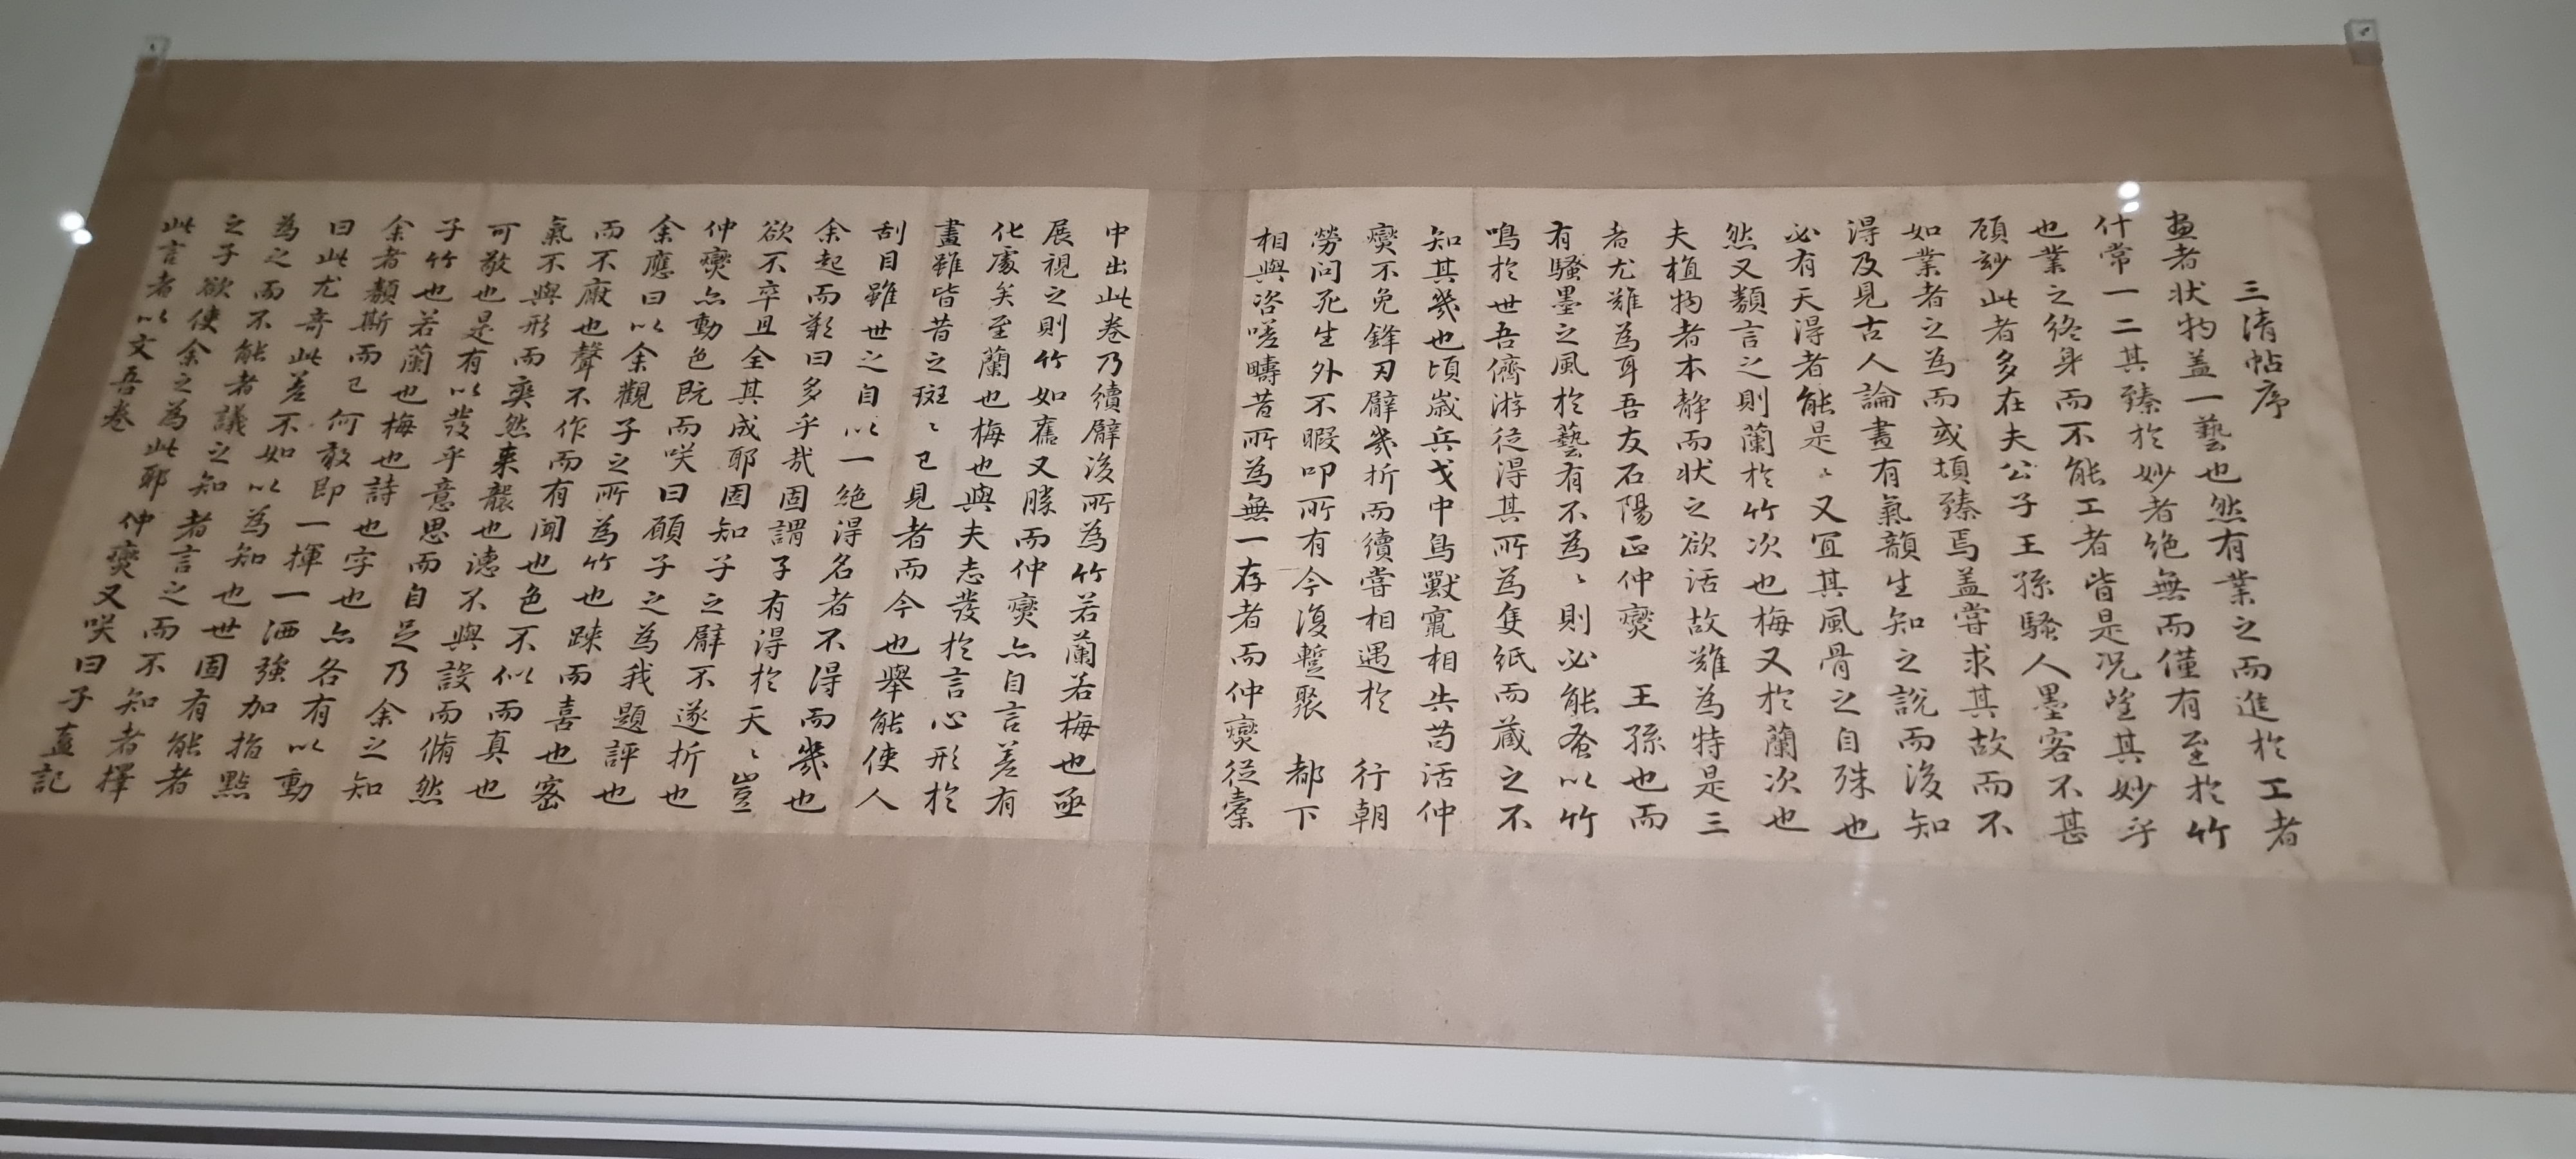 三清帖序
畫者状物盖一藝也然有業之而進於工者
什常一二其臻於妙者絶無而僅有至於竹
也業之終身而不能工者皆是况望其妙乎
顧玅此者多在夫公子王孫騷人墨客不甚
如業者之為而或頃臻焉盖嘗求其故而不
得及見古人論畫有氣韻生知之說而後知
必有天得者能是〻又冝其風骨之自殊也
然又䫫言之則蘭於竹次也梅又於蘭次也
夫植物者本静而状之欲活故難為特是三
者尤難為耳吾友石陽正仲爕 王孫也而
有騷墨之風於藝有不為〻則必能蚤以竹
鳴於世吾儕游従得其所為隻紙而蔵之不
知其幾也頃歳兵戈中鳥獸竄相失苟活仲
爕不免鋒刃臂幾折而續嘗相遇於 行朝
勞問死生外不暇叩所有今復蹔聚 都下
相與咨嗟疇昔所為無一存者而仲爕従槖
中出此卷乃續臂後所為竹若蘭若梅也亟
展視之則竹如舊又勝而仲爕亦自言差有
化處矣至蘭也梅也與夫志發於言心形於
畫雖皆昔之斑〻已見者而今也舉能使人
刮目雖世之自以一絶得名者不得而幾也
余起而歎曰多乎㢤固謂子有得於天〻豈
欲不卒且全其成耶固知子之臂不遂折也
仲爕亦動色既而咲曰顧子之為我題評也
余應曰以余觀子之所為竹也踈而喜也宻
而不厰也聲不作而有聞也色不似而真也
氣不與形而爽然来襲也德不與設而脩然
可敬也是有以發乎意思而自足乃余之知
子竹也若蘭也梅也詩也字也亦各有以動
余者䫫斯而已何敢即一揮一洒強加指點
曰此尤奇此差不如以為知也世固有能者
為之而不能者議之知者言之而不知者擇
之子欲使余之為此耶仲爕又咲曰子直記
此言者以文吾卷